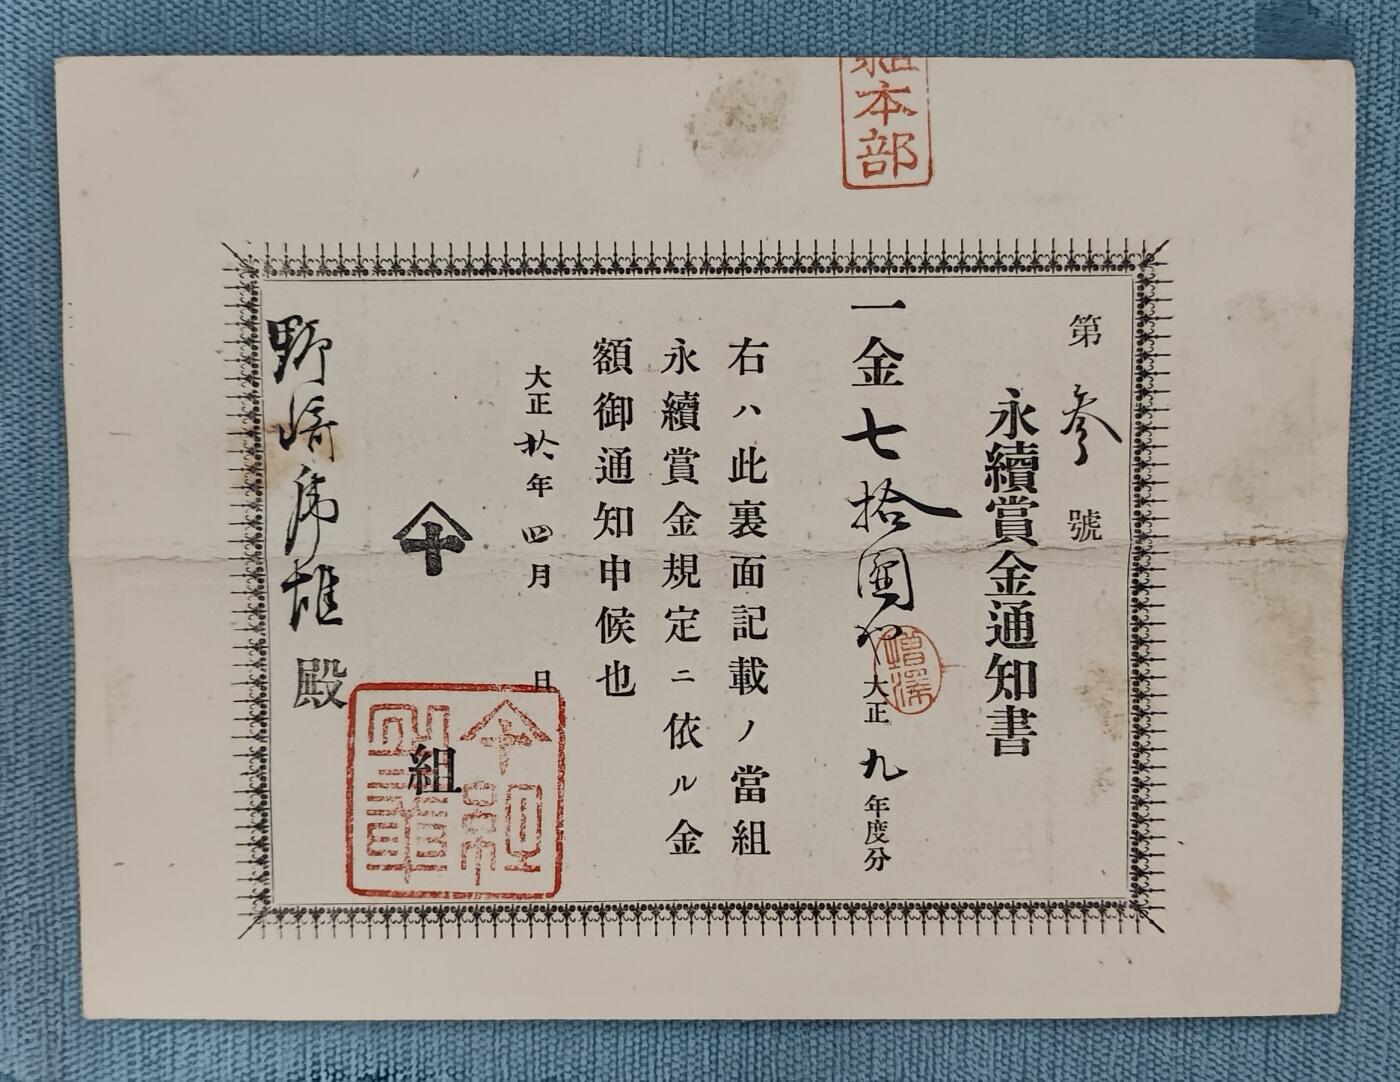 組本部
第参號
永續賞金通知書
一金七拾圓也 大正九年度分
右ハ此裏面記載ノ當組
永續賞金規定ニ依ル金
額御通知申候也
大正拾年四月 日
十組
野崎虎雄殿